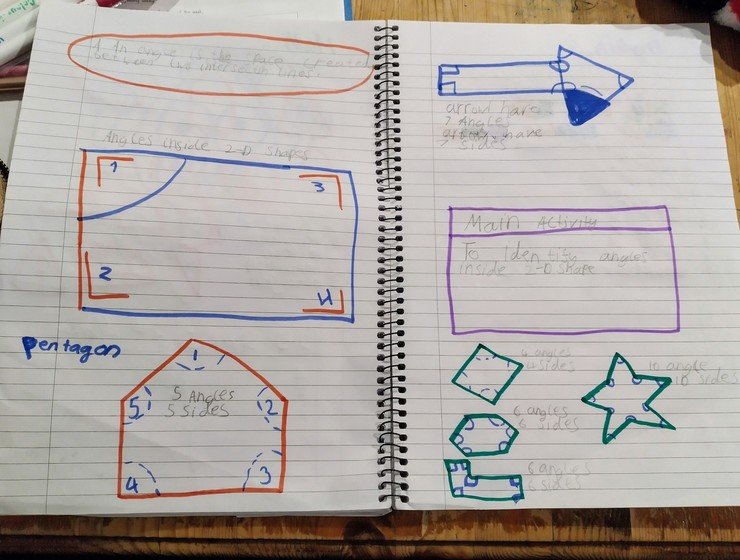 An angle is the space created
between two intersectn lines.
Angles inside 2-D shapes
1
3
2
4
Pentagon
1
5 Angles
5 sides
5
2
4
3
arrow have
7 Angles
arrow have
7 sides
Main Activity
To identify angles
inside 2-D shape
4 angles
4 sides
10 angle
10 sides
6 angles
6 sides
6 angles
6 sides